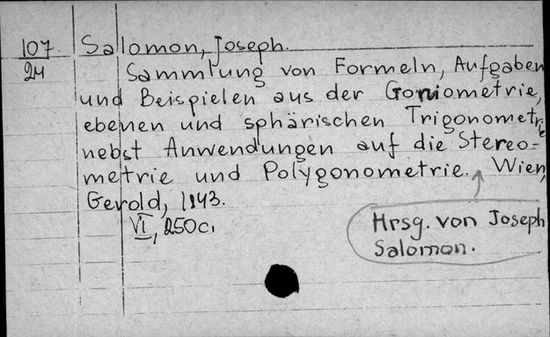 107.
24
Salomon, Joseph.
Sammlung von Formeln, Aufgaben
und Beispielen aus der Goniometrie,
ebenen und sphärischen Trigonometrie
nebst Anwendungen auf die Stereo-
metrie und Polygonometrie. Wien,
Gerold, 1843.
VI, 250 c.
Hrsg. von Joseph
Salomon.